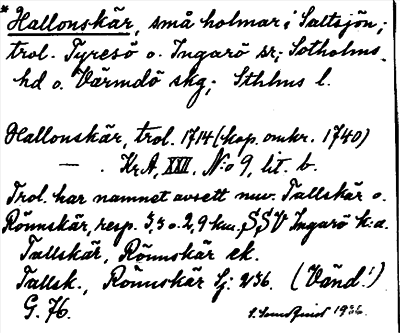 * Hallonskär, små holmar i Saltsjön;
trol. Tyresö o. Ingarö sr; Sotholms
hd o. Värmdö skg; Sthlms l.
Hallonskär, trol. 1714 (kop. omkr. 1740)
— . Kr. A. XXII. N:o 9, lit. b.
Trol. har namnet avsett nuv. Tallskär o.
Rönnskär, resp. 3,3 o. 2,9 km. SSV Ingarö k:a.
Tallskär, Rönnskär ek.
Tallsk., Rönnskär Sj: 236. (Vänd!)
G. 76.
1936